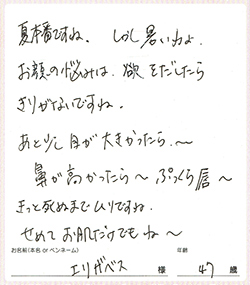 夏本番ですね。しかし暑いわよ。
お顔の悩みは、欲をだしたら
きりがないですね。
あと少し目が大きかったら、〜
鼻が高かったら〜ぷっくら唇〜
きっと死ぬまでムリですね。
せめてお肌だけでもね〜
お名前(本名 or ペンネーム) 年齢
エリザベス 様 47 歳